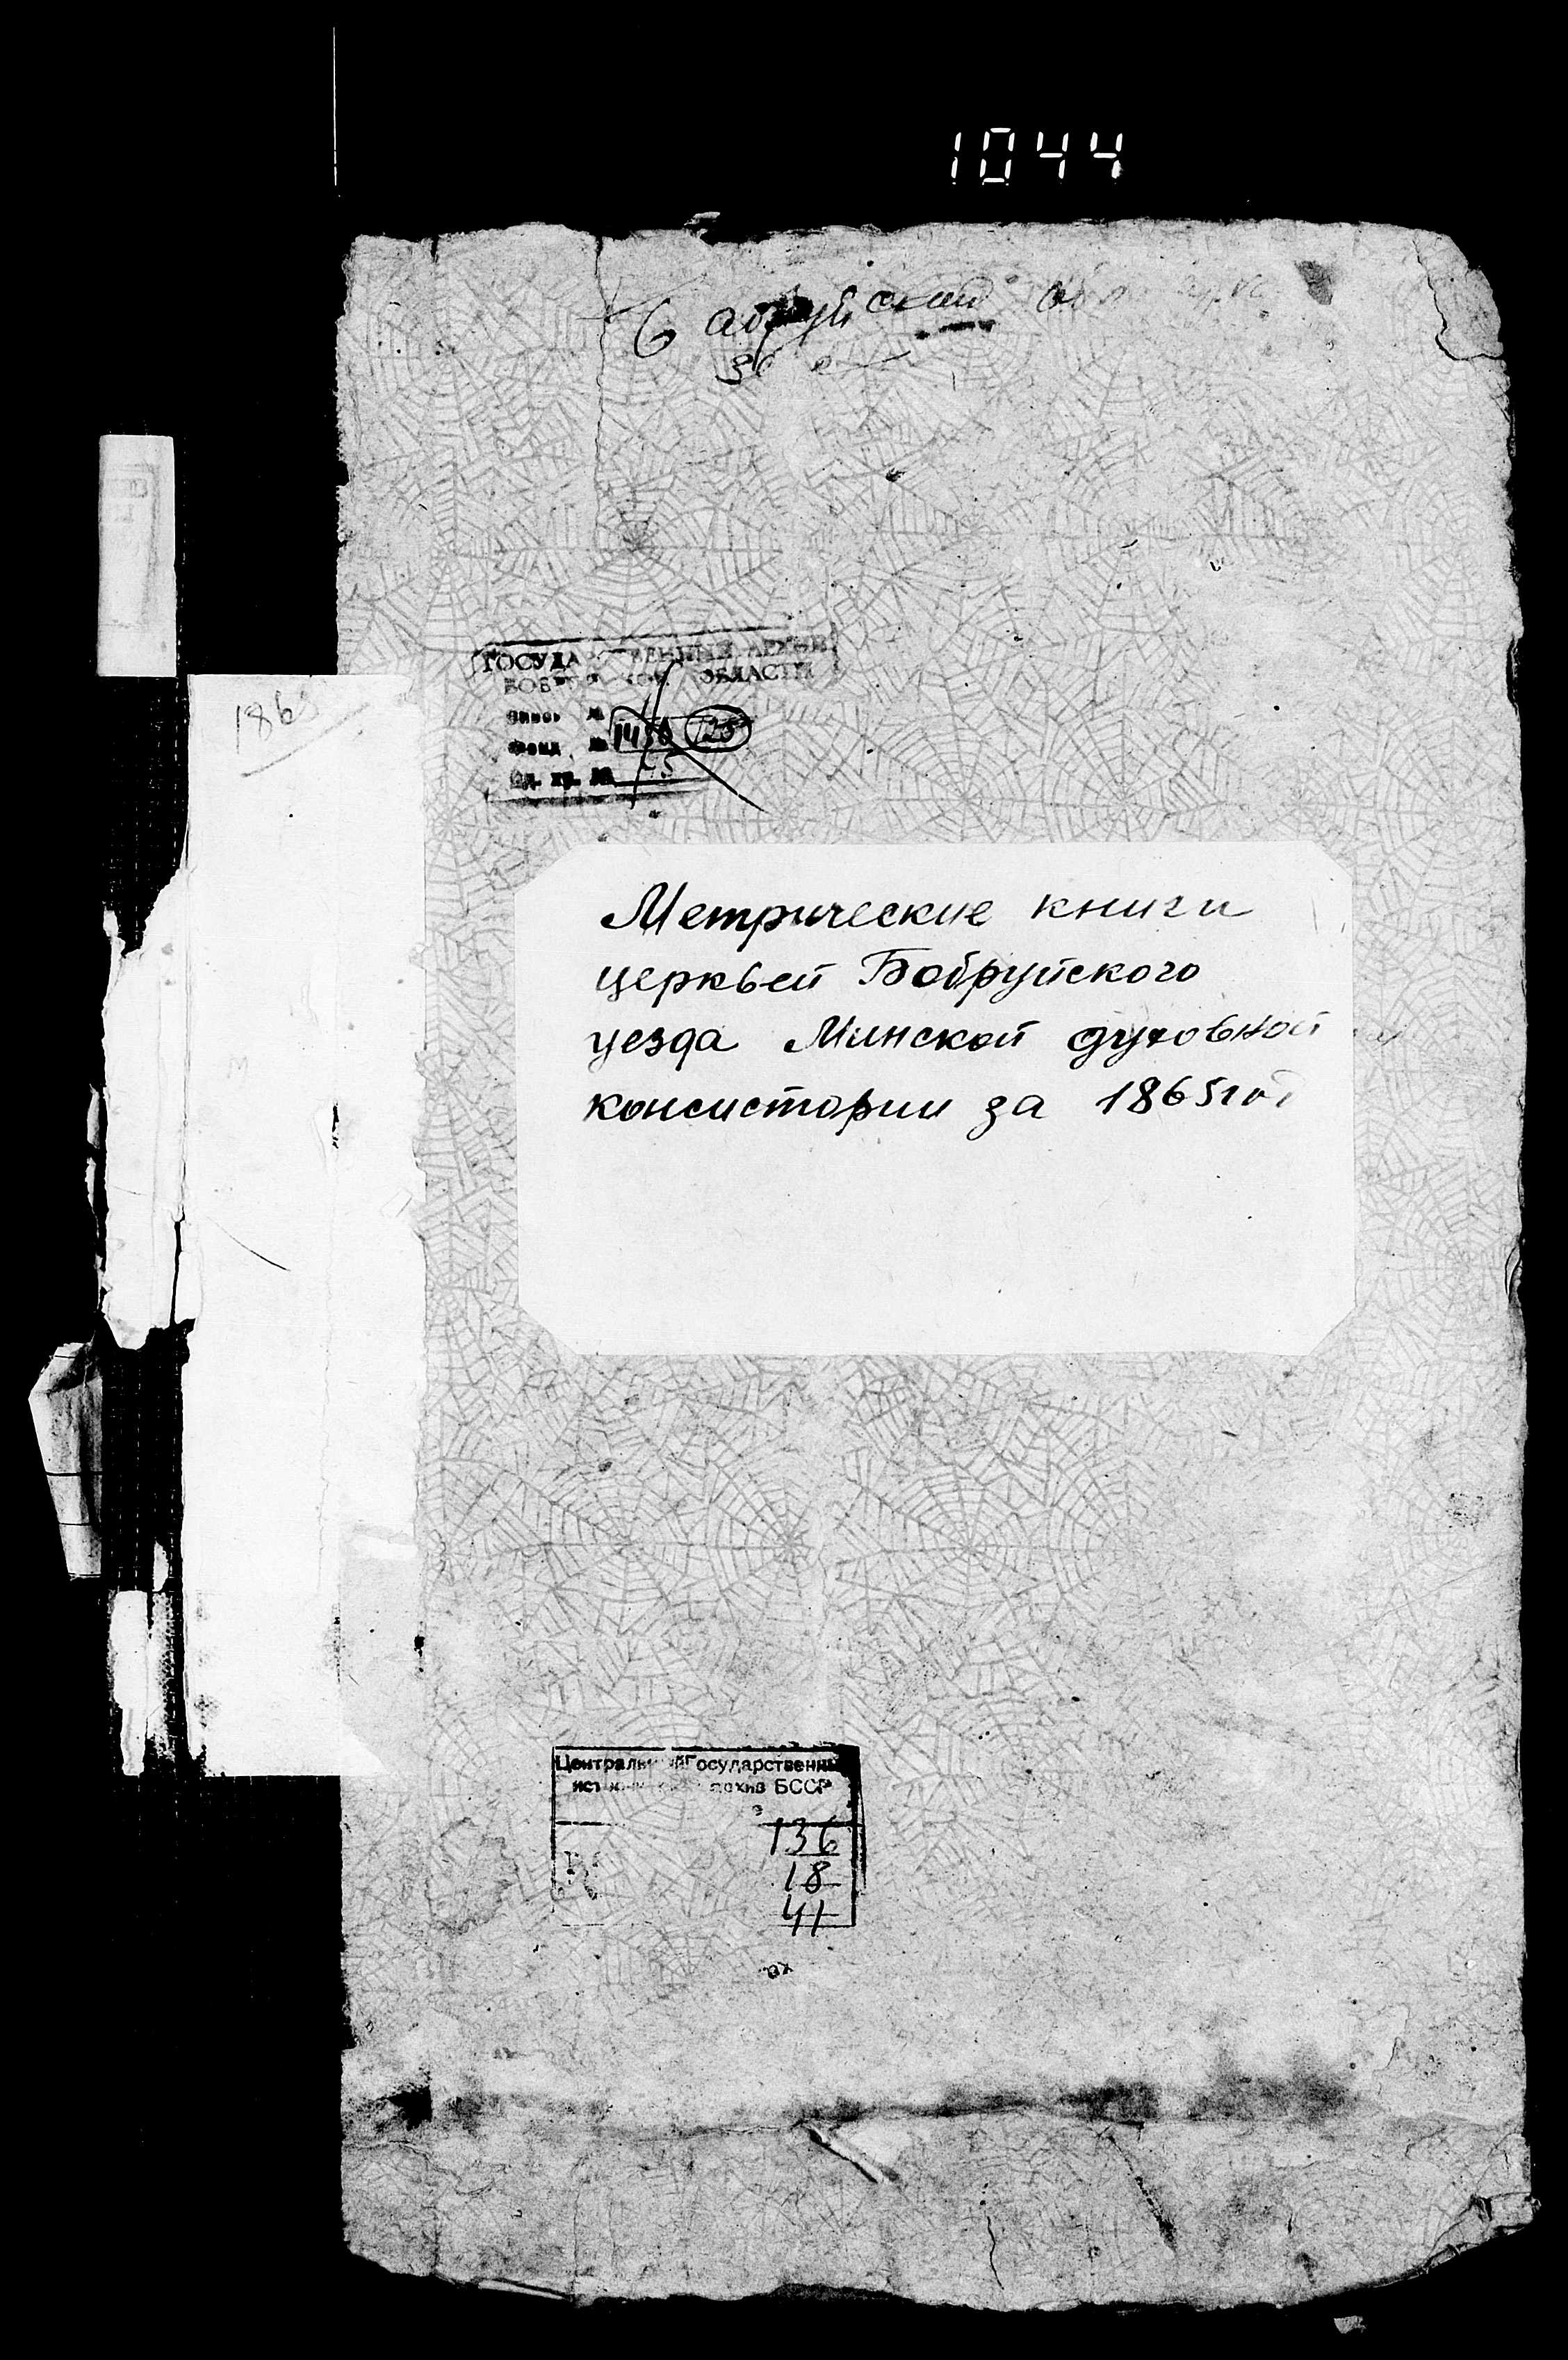 1044
1865
ГОСУДАРСТВЕННЫЙ АРХИВ
ОБЛАСТИ
Фонд №
Ед. хр. №
Метрические книги
церквей Бобруйского
уезда Минской духовной
консистории за 1865 год
Центральный Государственный
исторический архив БССР
136
18
41